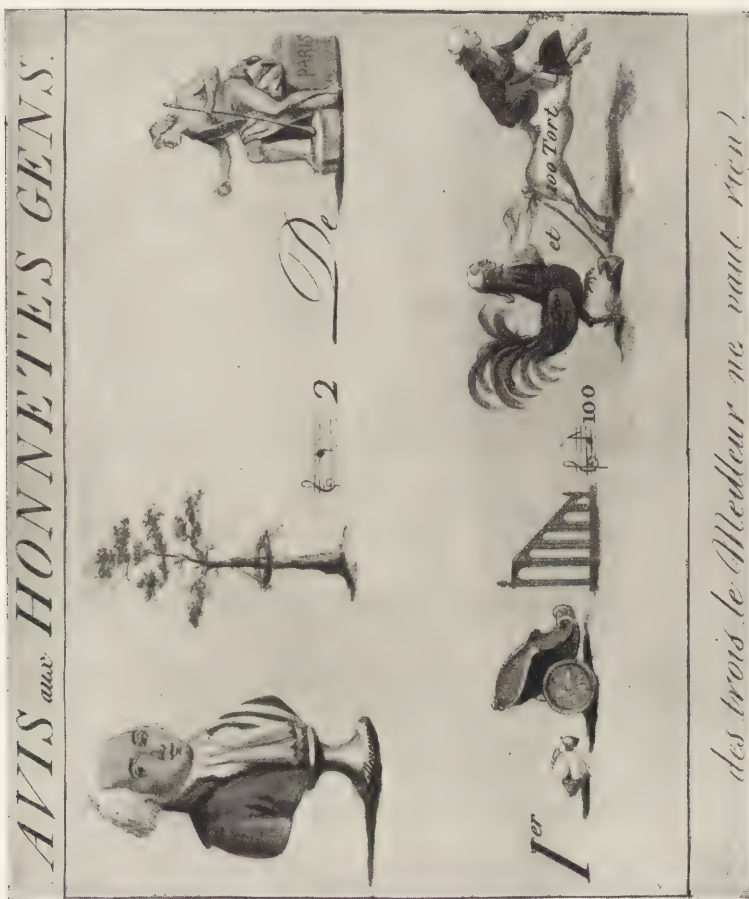 AVIS aux HONNETES GENS.
PARIS
2 De
Ier 100 et 100 Tort
des trois le Meilleur ne vaut rien!